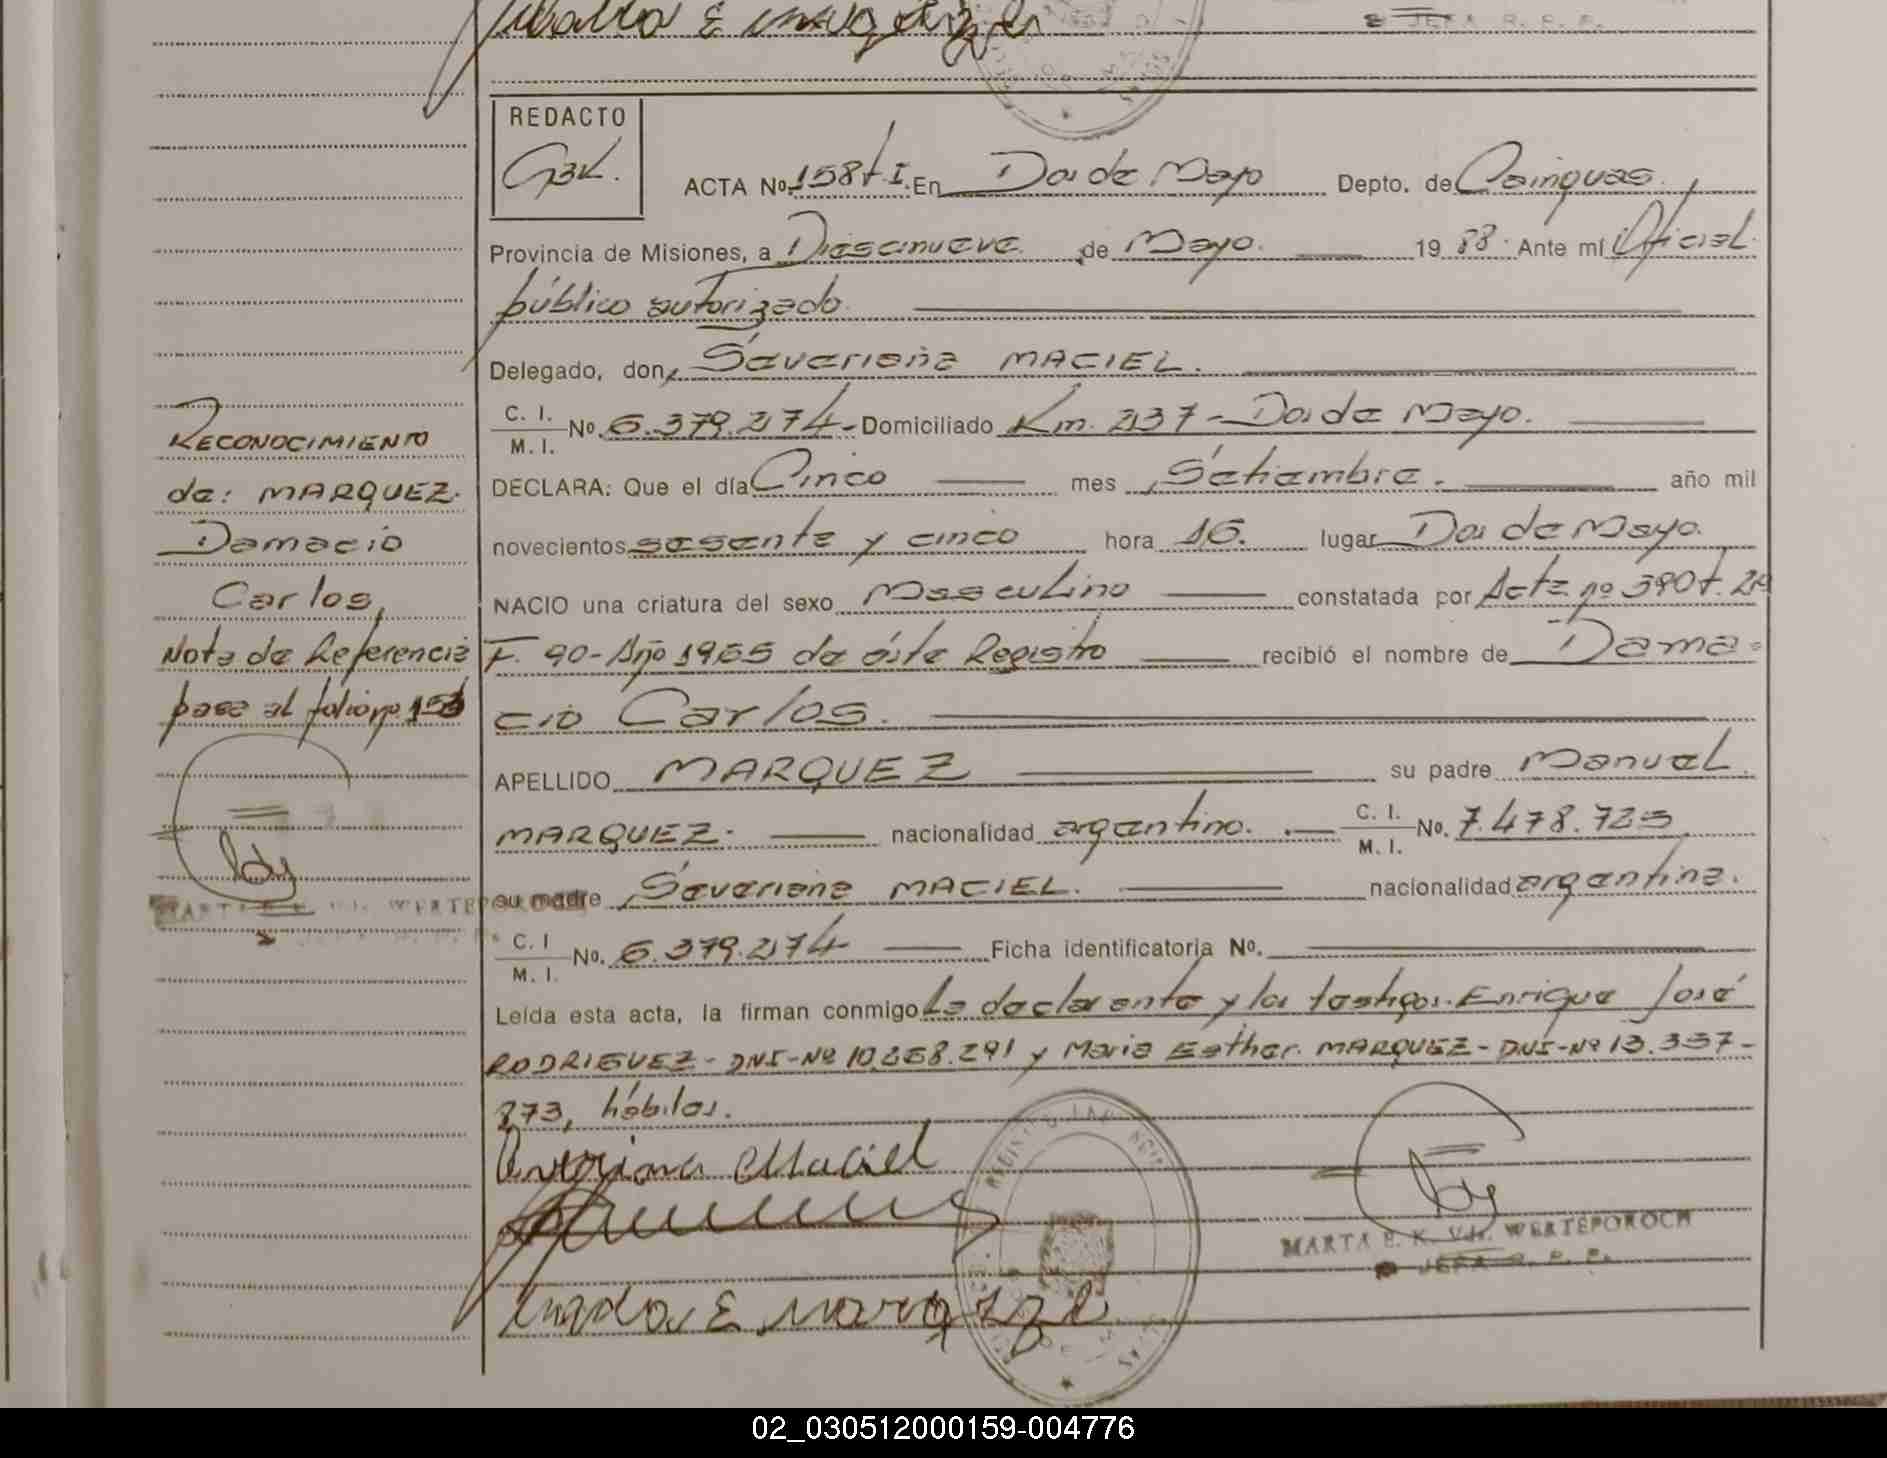 JEFA R. P. E.
REDACTO
GBK.
ACTA No. 158 t. I. En Dos de Mayo Depto. de Cainguas.
Provincia de Misiones, a Diesinueve de Mayo. 1988. Ante mí Oficial
público autorizado.
Delegado, don, Severiana MACIEL.
C. I.
M. I. No. 6.379.274- Domiciliado Km. 237 - Dos de Mayo.
DECLARA: Que el día Cinco mes Setiembre. año mil
novecientos sesenta y cinco hora 16. lugar Dos de Mayo.
NACIO una criatura del sexo Masculino constatada por Acta nº 390 t. 2º
F. 90- Año 1965 de éste Registro recibió el nombre de Dama=
cio Carlos.
APELLIDO MARQUEZ su padre Manuel
MARQUEZ. nacionalidad argentino. C. I.
M. I. No. 7.478.723
su madre Severiana MACIEL. nacionalidad argentina.
C. I
M. I. No. 6.379.274 Ficha identificatoria No.
Leída esta acta, la firman conmigo La declarante y los testigos. Enrique José
RODRIGUEZ - DNI-Nº 10.268.291 y Maria Esther. MARQUEZ - DNI-Nº 13.337-
273, hábiles.
Severiana Maciel
MARTA E. K. Vda. WERTEPOROCH
JEFA R. P. E.
RECONOCIMIENTO
de: MARQUEZ.
Damacio
Carlos,
Nota de Referencia
pasa al folio nº
MARTA E. K. Vda. WERTEPOROCH
02_030512000159-004776